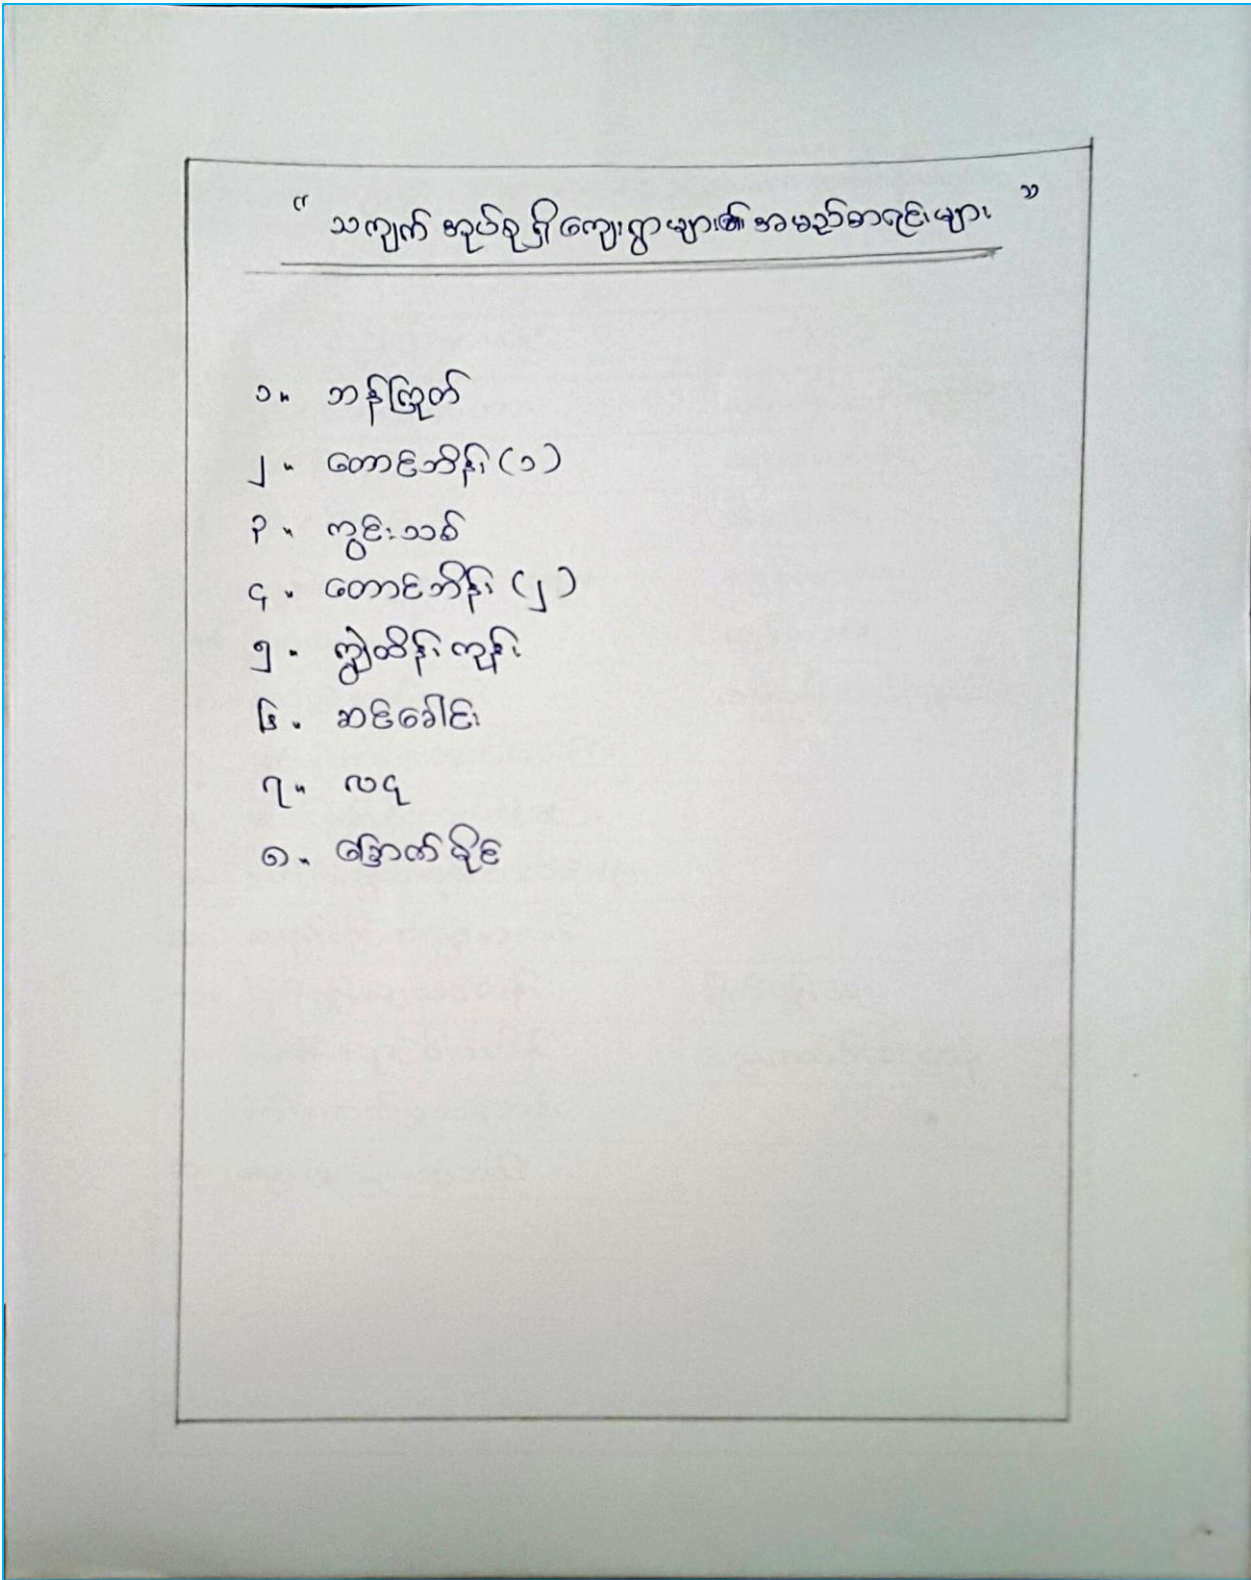 “ သကျက် အုပ်စု ရှိ ကျေးရွာများ၏ အမည်စာရင်းများ ”
၁။ ဘန်ကြုတ်
၂။ တောင်ဘိန်း (၁)
၃။ ကွင်းသစ်
၄။ တောင်ဘိန်း (၂)
၅။ ကျွဲထိန်းကုန်း
၆။ ဆင်ခေါင်း
၇။ လငု
၈။ ခြောက်စိုင်